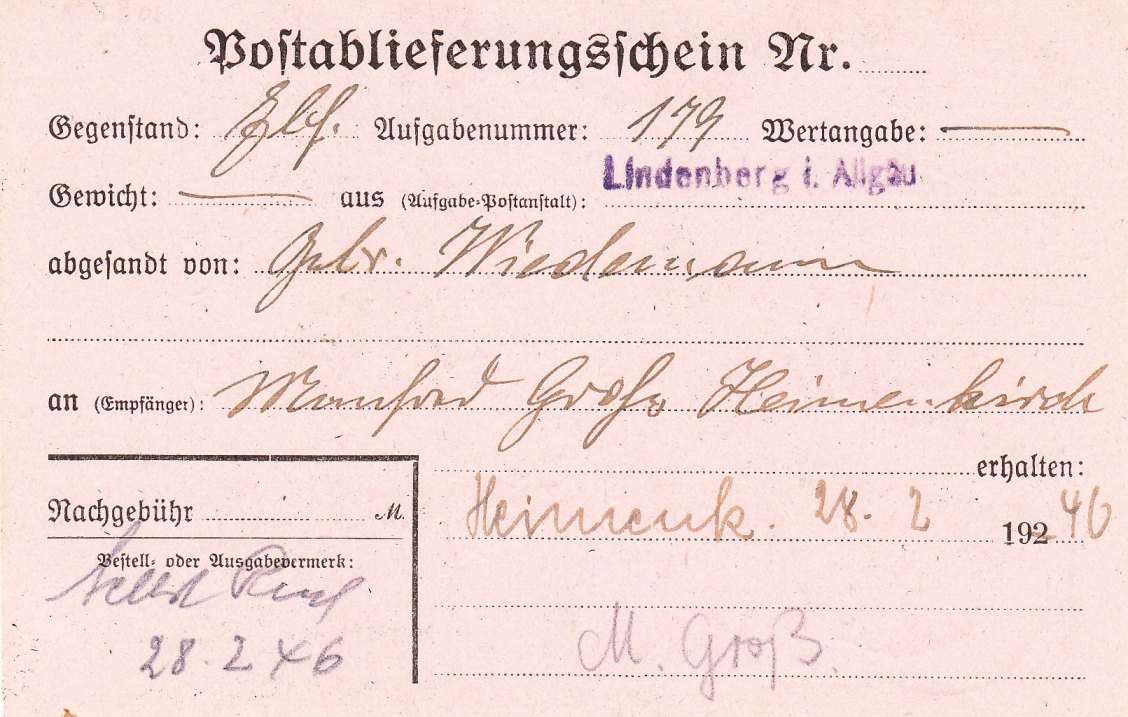 Postablieferungsschein Nr.
Gegenstand: Aufgabenummer: 179 Wertangabe: —
Gewicht: — aus (Aufgabe-Postanstalt): Lindenberg i. Allgäu
abgesandt von: Gebr. Wiedemann
an (Empfänger): Manfred Groß Heimenkirch
erhalten:
Nachgebühr M.
Heimenk. 28. 2 192 46
Bestell- oder Ausgabevermerk:
28. 2 46
M. Groß